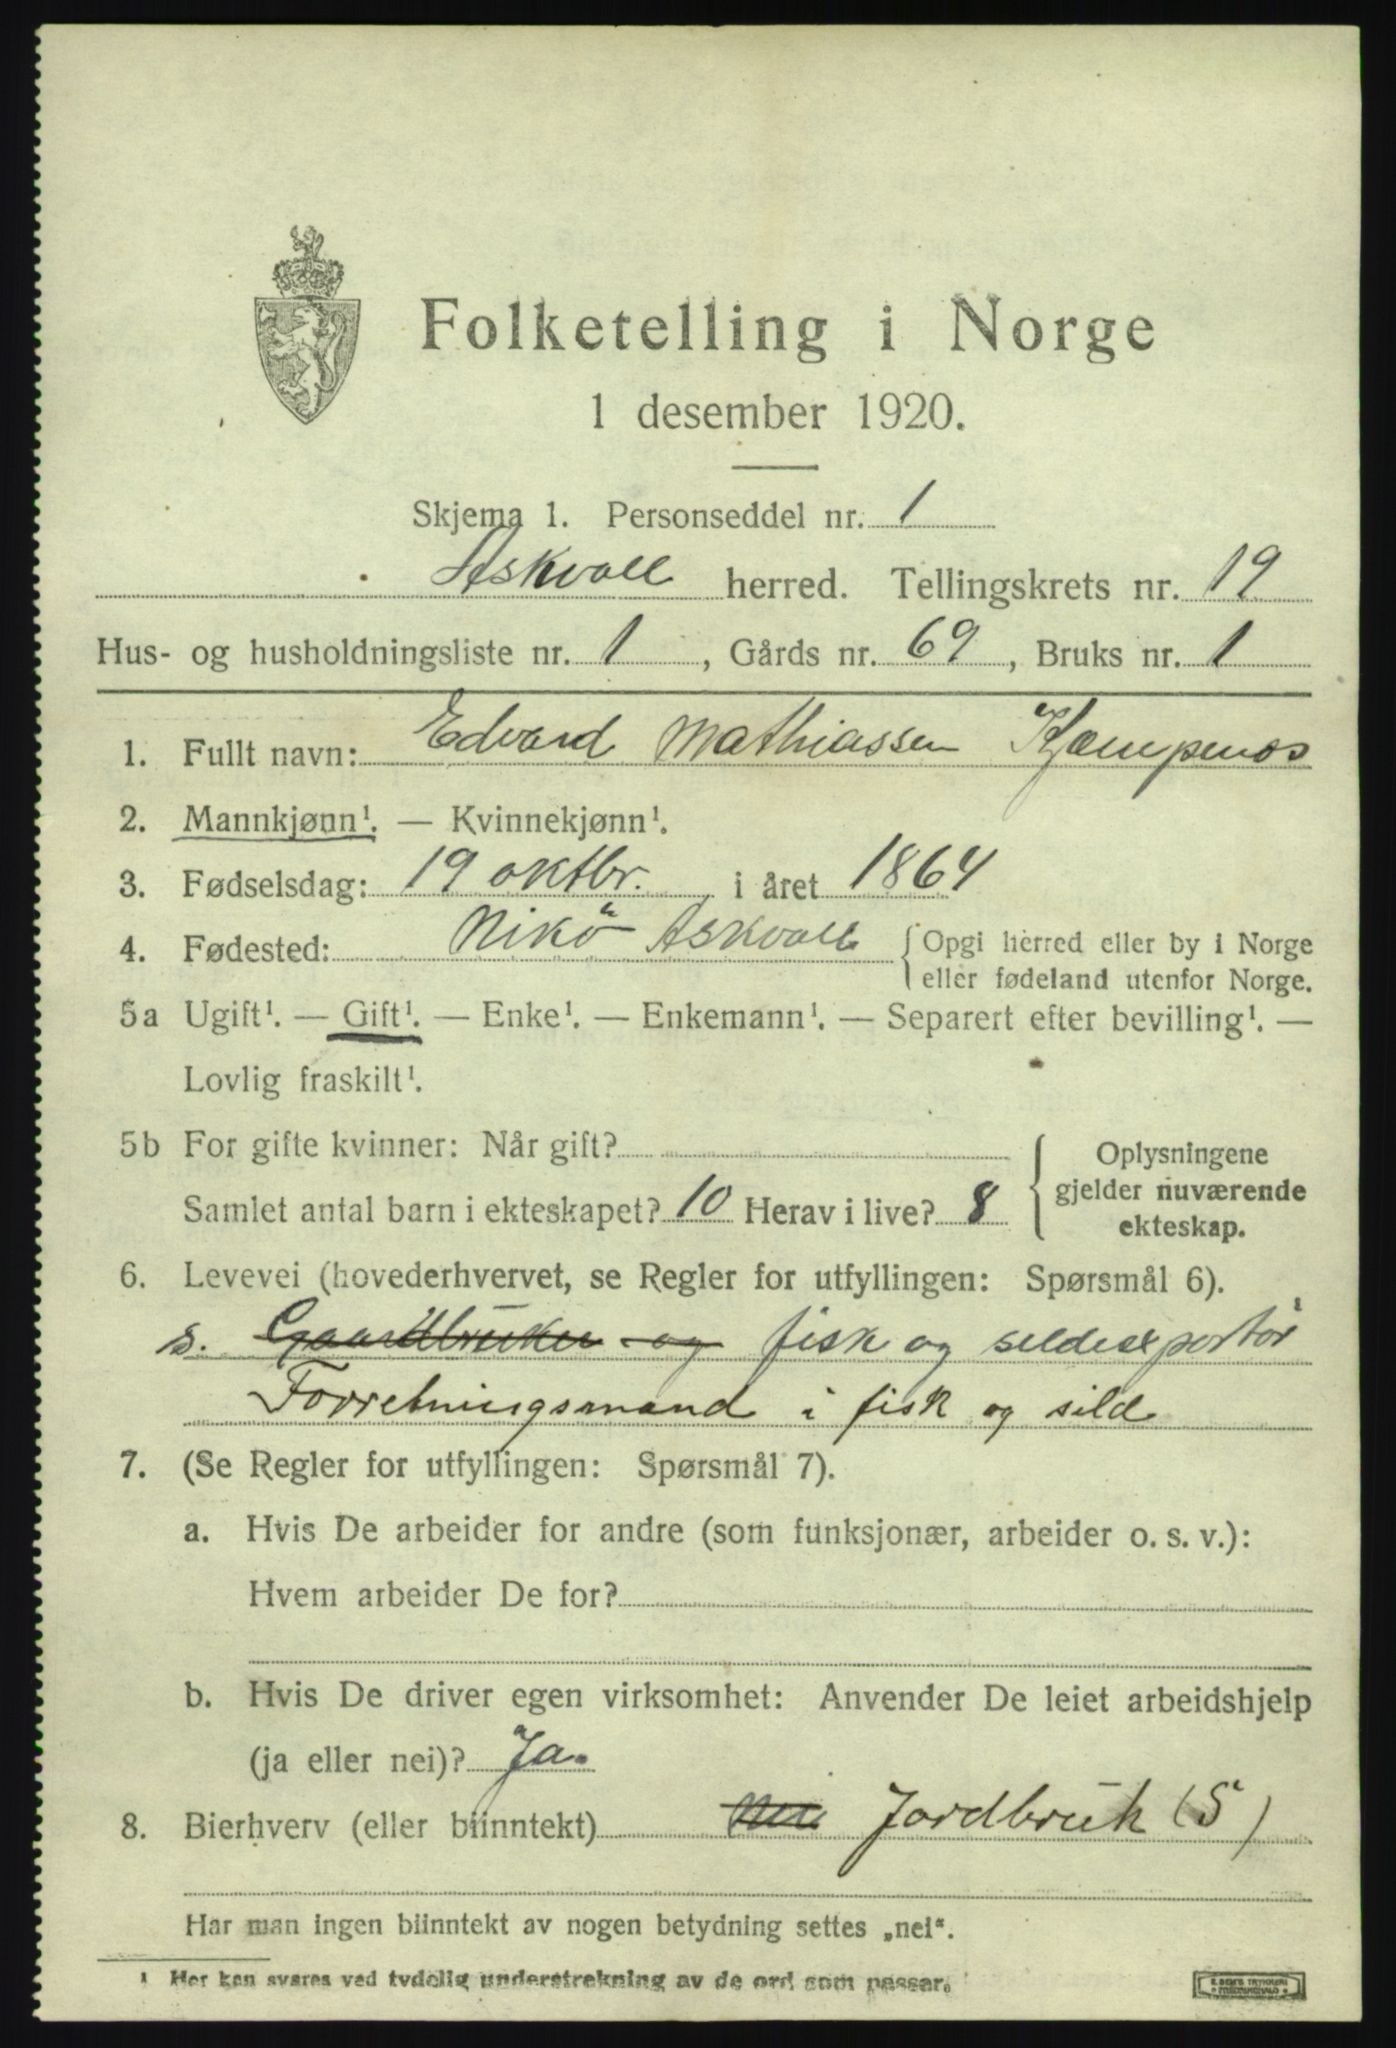 Folketelling i Norge
1 desember 1920.
Skjema 1. Personseddel nr. 1
Askvoll herred. Tellingskrets nr. 19
Hus- og husholdningsliste nr. 1, Gårds nr. 69, Bruks nr. 1
1. Fullt navn: Edvard Mathiassen Kjempenes
2. Mannkjønn¹. — Kvinnekjønn¹.
3. Fødselsdag: 19 oktbr. i året 1864
4. Fødested: Nikö Askvoll { Opgi herred eller by i Norge
eller fødeland utenfor Norge.
5a Ugift¹. — Gift¹. — Enke¹. — Enkemann¹. — Separert efter bevilling¹. —
Lovlig fraskilt¹.
5b For gifte kvinner: Når gift?
Samlet antal barn i ekteskapet? 10 Herav i live? 8
{ Oplysningene
gjelder nuværende
ekteskap.
6. Levevei (hovederhvervet, se Regler for utfyllingen: Spørsmål 6).
s. Gaardbruker og fisk og sildeexportør
Forretningsmand i fisk og sild
7. (Se Regler for utfyllingen: Spørsmål 7).
a. Hvis De arbeider for andre (som funksjonær, arbeider o. s. v.):
Hvem arbeider De for?
b. Hvis De driver egen virksomhet: Anvender De leiet arbeidshjelp
(ja eller nei)? Ja.
8. Bierhverv (eller biinntekt) Nei Jordbruk (S)
Har man ingen biinntekt av nogen betydning settes „nei“.
¹ Her kan svares ved tydelig understrekning av de ord som passer.